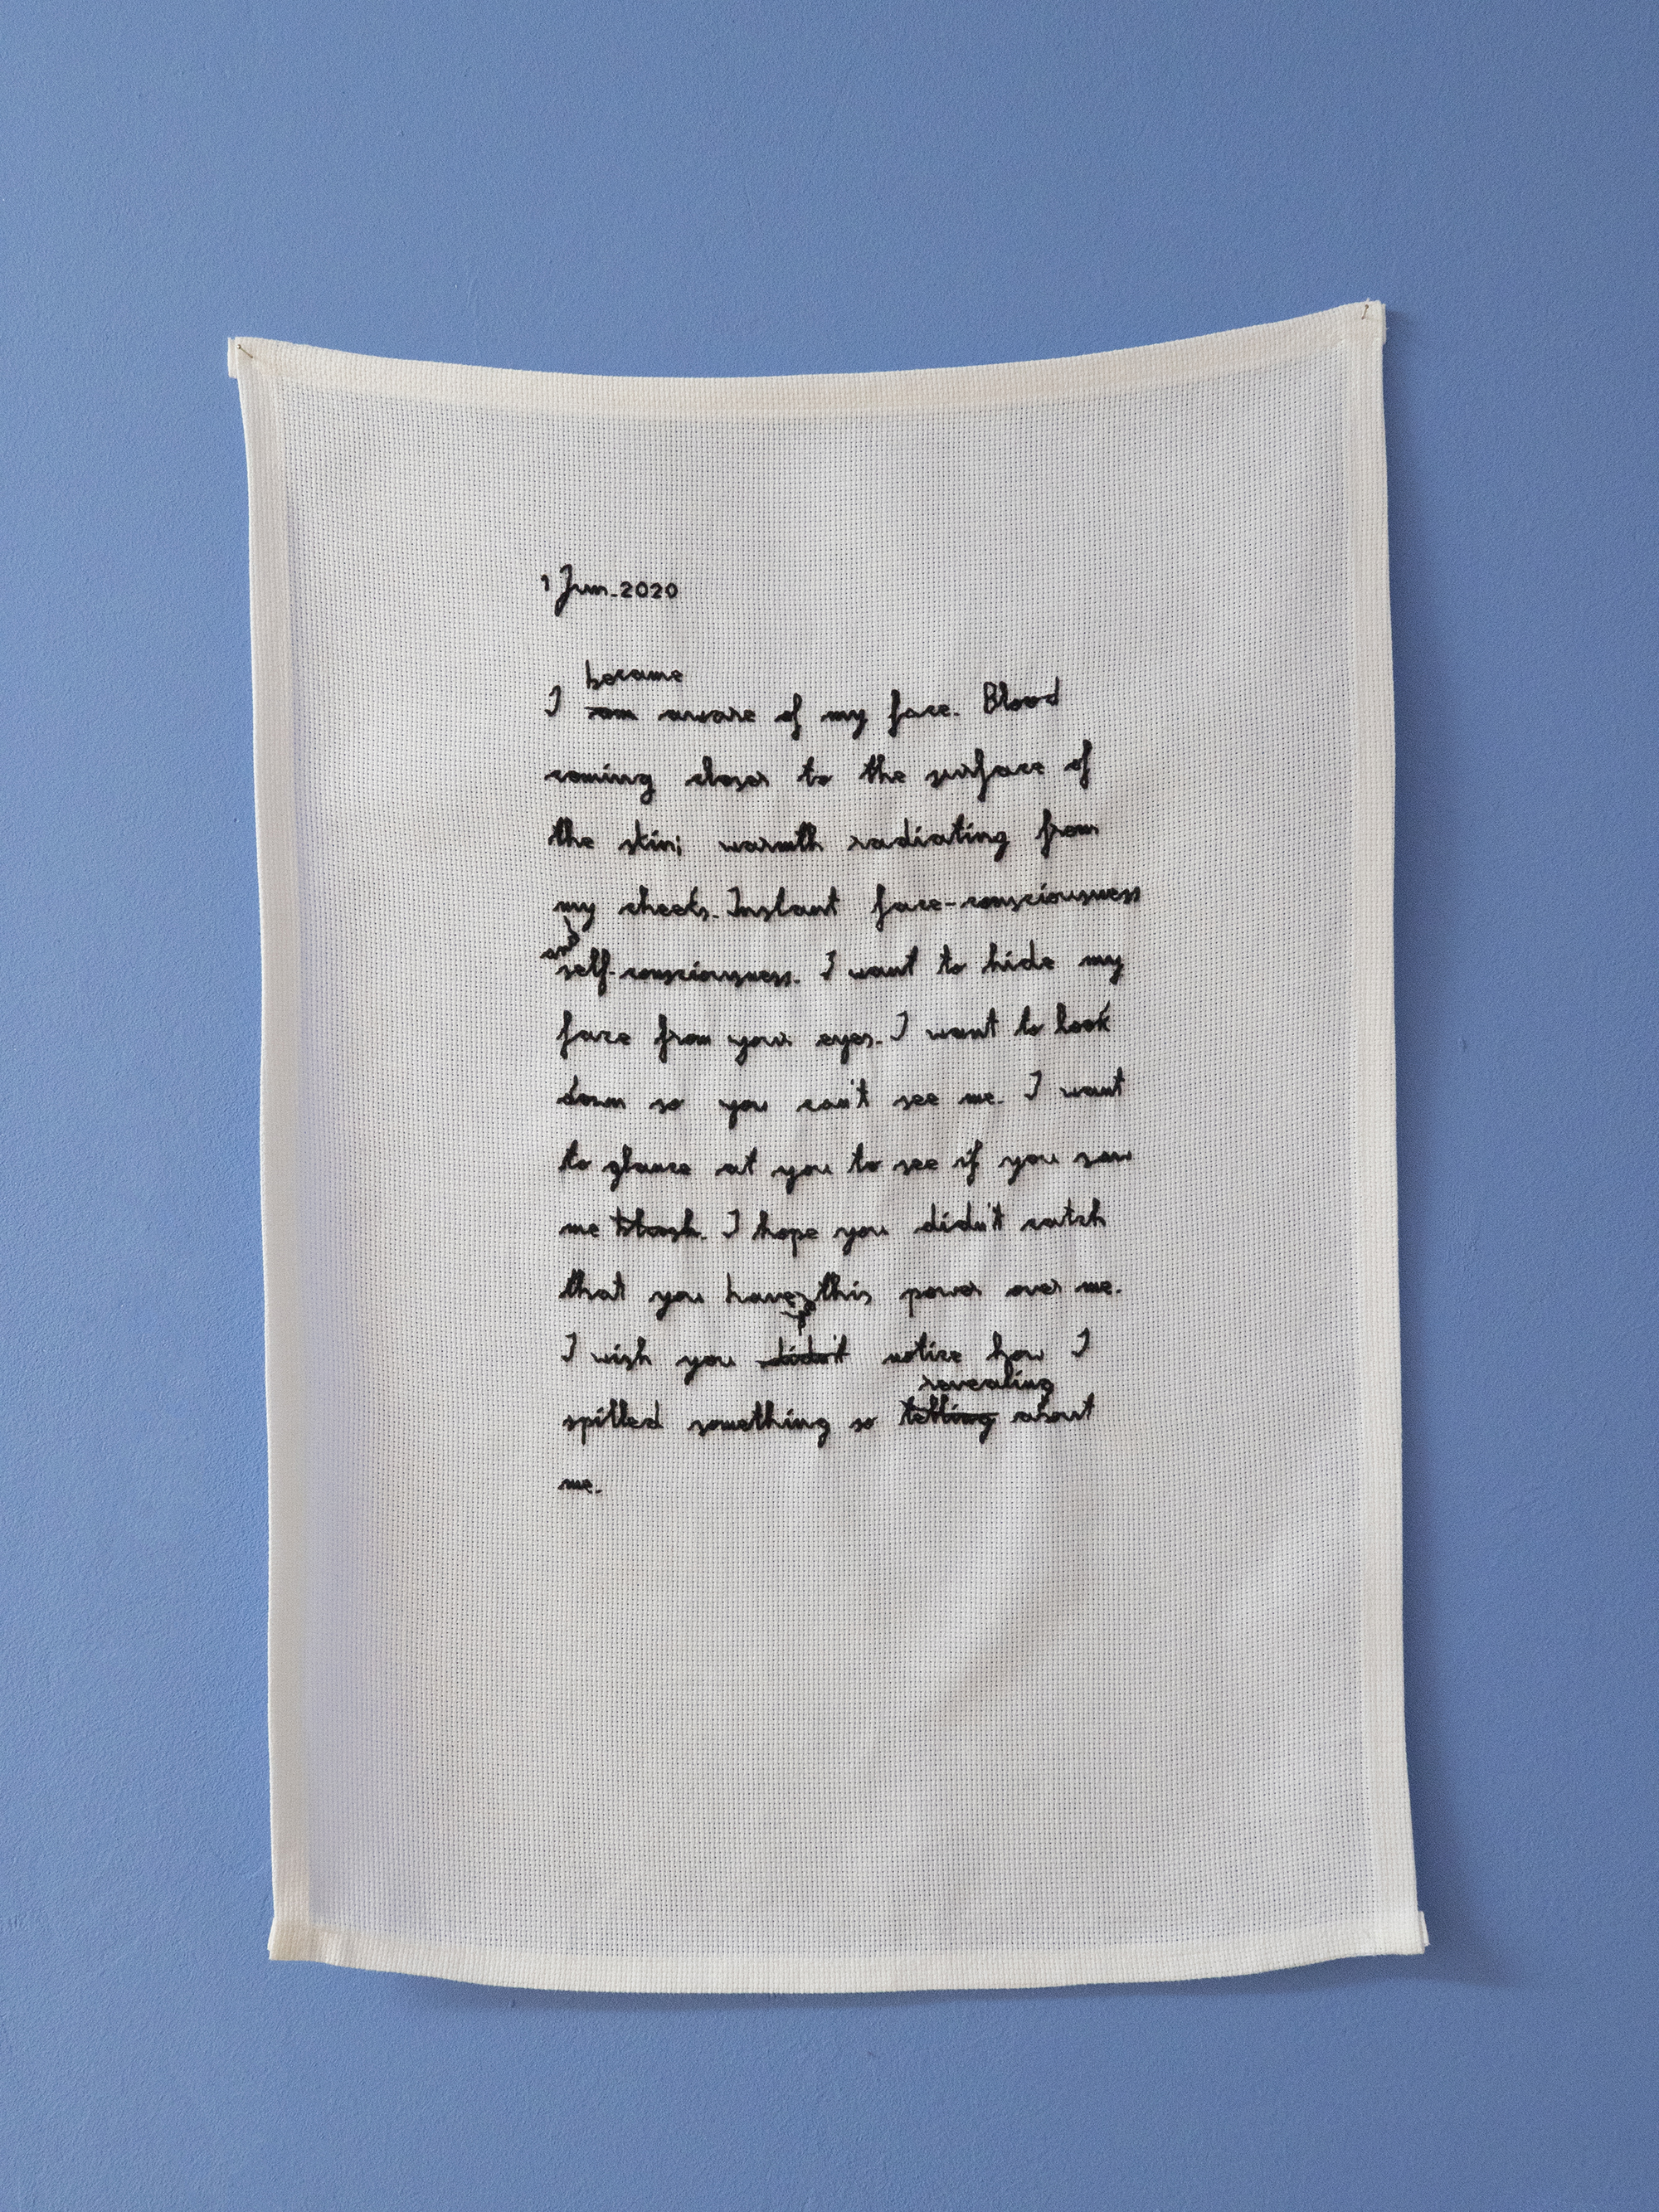 1 Jun. 2020
became
I am aware of my face. Blood
coming closer to the surface of
the skin; warmth radiating from
my cheeks. Instant face-consciousness
and
self-consciousness. I want to hide my
face from your eyes. I want to look
down so you can't see me. I want
to glance at you to see if you saw
me blush. I hope you didn't catch
that you have this power over me.
I wish you didn't notice how I
revealing
spilled something so telling about
me.